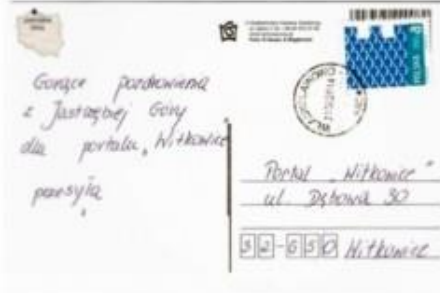 Gorące pozdrowienia
z Jastrzębiej Góry
dla portalu „Witkowice"
przesyła
Portal „Witkowice"
ul. Dębowa 30
32-650 Witkowice
POLSKA
WŁADYSŁAWOWO